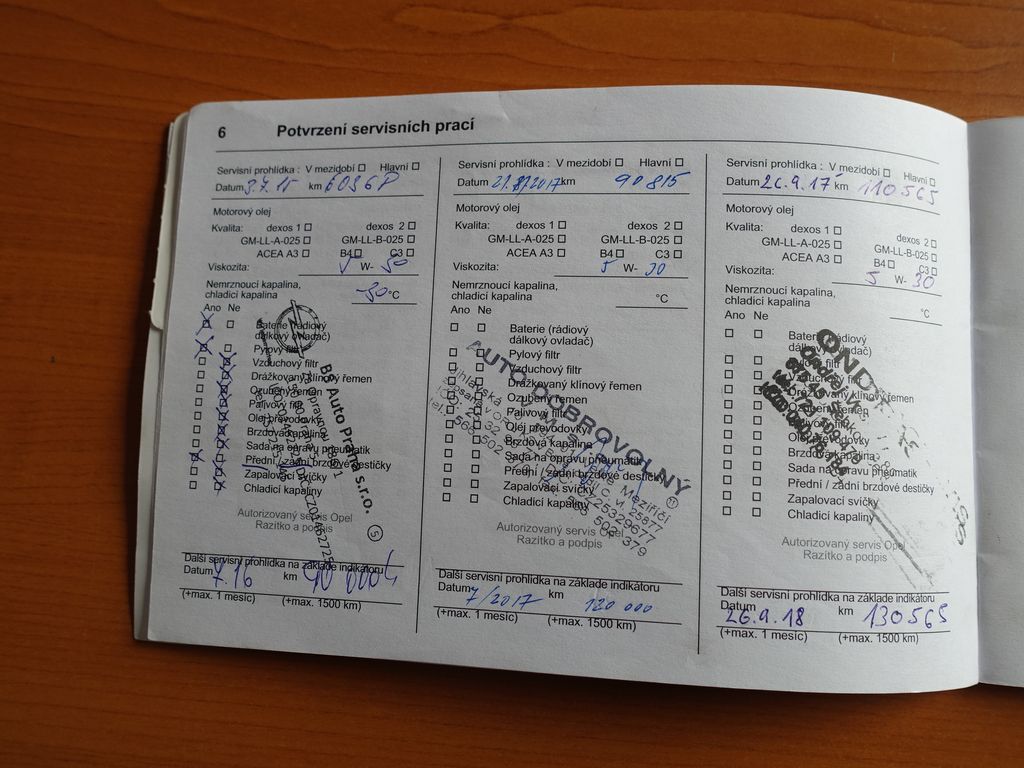 6 Potvrzení servisních prací
Servisní prohlídka : V mezidobí Hlavní
Datum km
Motorový olej
Kvalita: dexos 1 dexos 2
GM-LL-A-025 GM-LL-B-025
ACEA A3 B4 C3
Viskozita: 5 W- 30
Nemrznoucí kapalina,
chladicí kapalina -30 °C
Ano Ne
Baterie (rádiový
dálkový ovladač)
Pylový filtr
Vzduchový filtr
Drážkovaný klínový řemen
Ozubený řemen
Palivový filtr
Olej převodovky
Brzdová kapalina
Sada na opravu pneumatik
Přední / zadní brzdové destičky
Zapalovací svíčky
Chladicí kapaliny
B8 Auto Praha s.r.o.
5
Autorizovaný servis Opel
Razítko a podpis
Další servisní prohlídka na základě indikátoru
Datum 7.16 km
(+max. 1 mesíc) (+max. 1500 km)
Servisní prohlídka : V mezidobí Hlavní
Datum km 90 815
Motorový olej
Kvalita: dexos 1 dexos 2
GM-LL-A-025 GM-LL-B-025
ACEA A3 B4 C3
Viskozita: 5 W- 30
Nemrznoucí kapalina,
chladicí kapalina °C
Ano Ne
Baterie (rádiový
dálkový ovladač)
Pylový filtr
Vzduchový filtr
Drážkovaný klínový řemen
Ozubený řemen
Palivový filtr
Olej převodovky
Brzdová kapalina
Sada na opravu pneumatik
Přední / zadní brzdové destičky
Zapalovací svíčky
Chladicí kapaliny
AUTO DOBROVOLNÝ
Autorizovaný servis Opel
Razítko a podpis
Další servisní prohlídka na základě indikátoru
Datum 7/2017 km 120 000
(+max. 1 mesíc) (+max. 1500 km)
Servisní prohlídka : V mezidobí Hlavní
Datum 26.9.17 km 110565
Motorový olej
Kvalita: dexos 1 dexos 2
GM-LL-A-025 GM-LL-B-025
ACEA A3 B4 C3
Viskozita: 5 W- 30
Nemrznoucí kapalina,
chladicí kapalina °C
Ano Ne
Baterie (rádiový
dálkový ovladač)
Pylový filtr
Vzduchový filtr
Drážkovaný klínový řemen
Ozubený řemen
Palivový filtr
Olej převodovky
Brzdová kapalina
Sada na opravu pneumatik
Přední / zadní brzdové destičky
Zapalovací svíčky
Chladicí kapaliny
Autorizovaný servis Opel
Razítko a podpis
Další servisní prohlídka na základě indikátoru
Datum 26.9.18 km 130565
(+max. 1 mesíc) (+max. 1500 km)